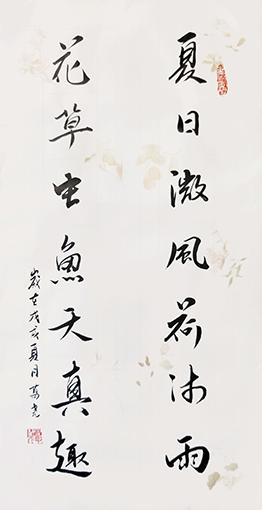 夏日微風荷沐雨
花草虫魚天真趣
歲在亥夏月